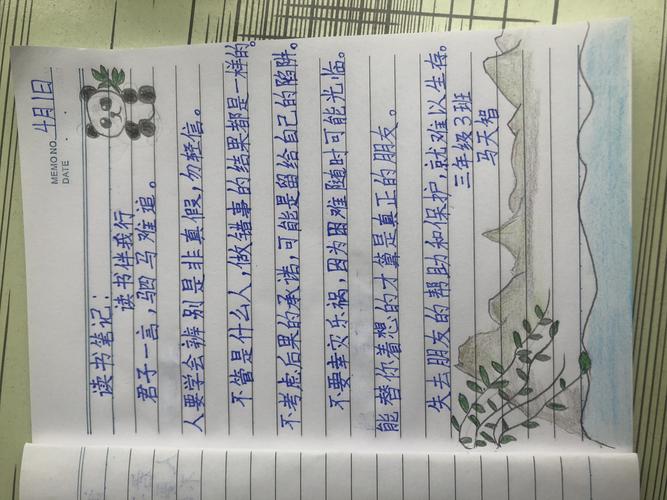 MEMO NO.
DATE
4月1日
读书笔记：
读书伴我行
君子一言，驷马难追。
人要学会辨别是非真假，勿轻信。
不管是什么人，做错事的结果都是一样的。
不考虑后果的承诺，可能是留给自己的陷阱。
不要幸灾乐祸，因为困难随时可能光临。
能替你着想的才算是真正的朋友。
失去朋友的帮助和保护，就难以生存。
三年级3班
马天智